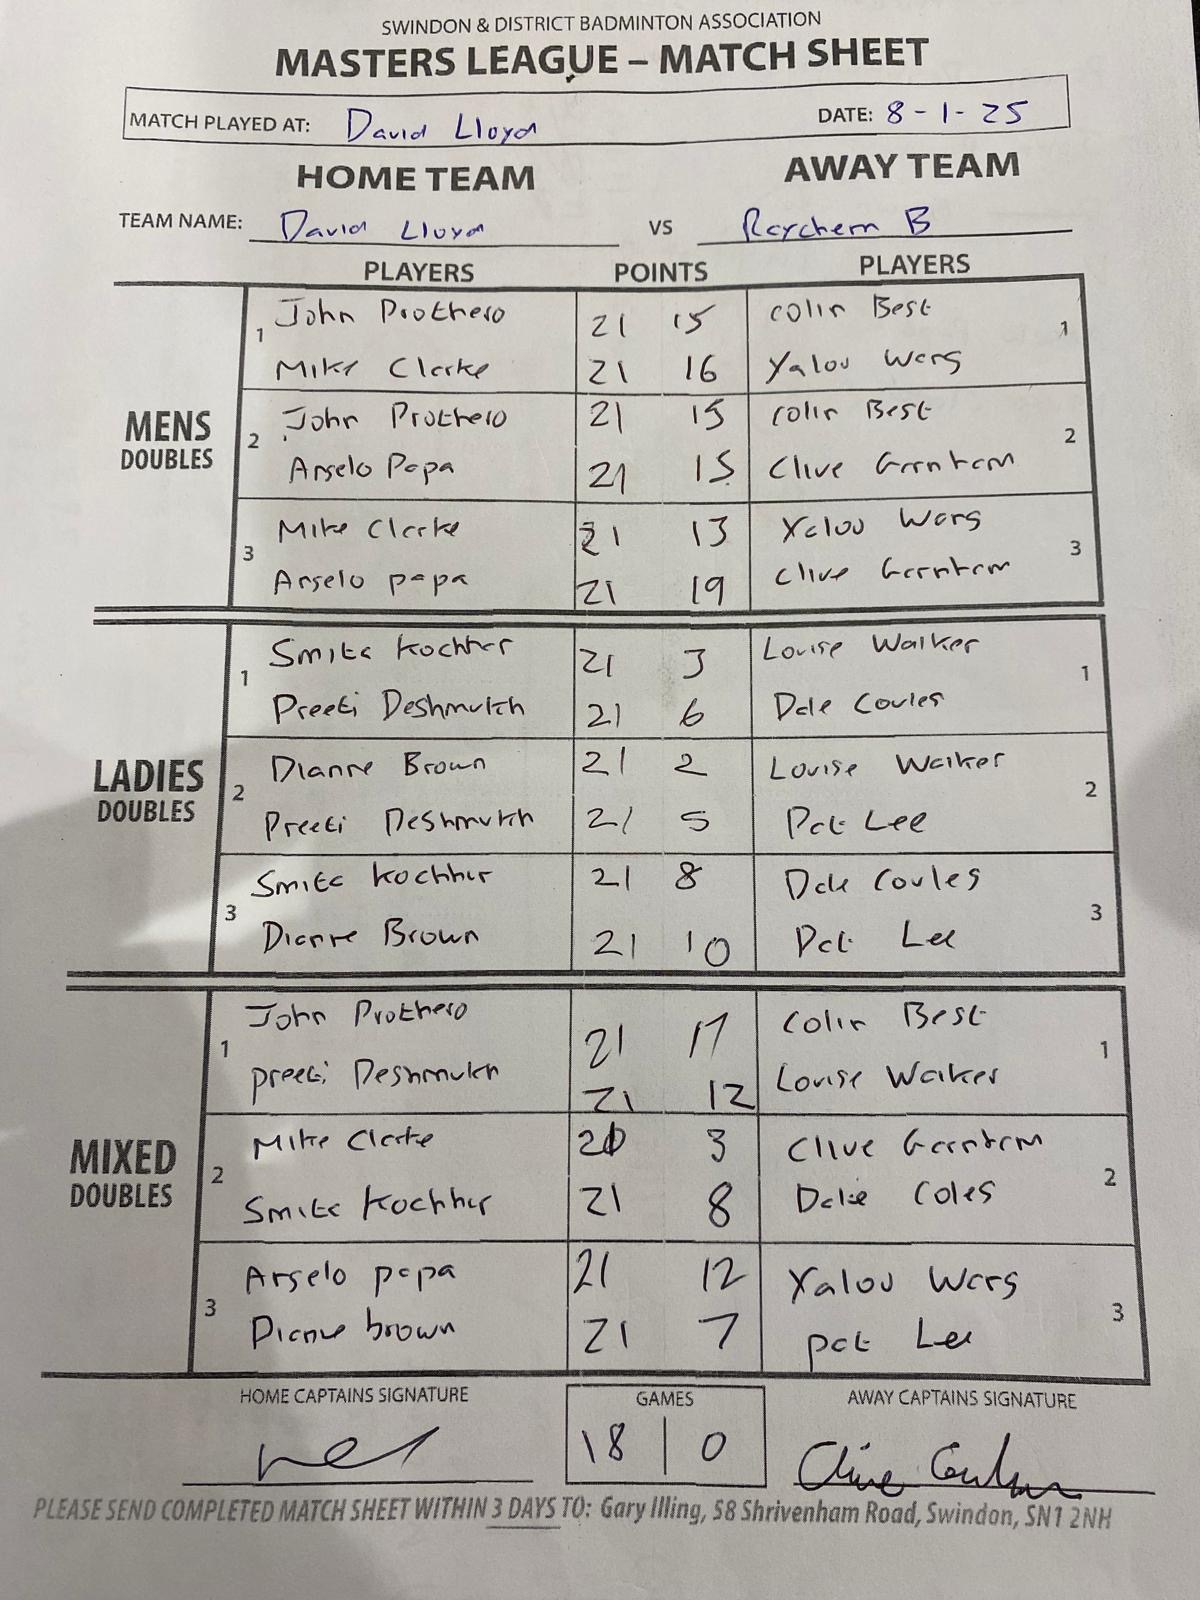 SWINDON & DISTRICT BADMINTON ASSOCIATION
MASTERS LEAGUE – MATCH SHEET
MATCH PLAYED AT: David Lloyd DATE: 8-1-25
HOME TEAM AWAY TEAM
TEAM NAME: David Lloyd VS Raychem B
PLAYERS POINTS PLAYERS
MENS DOUBLES
1 John Prothero 21 15 Colin Best 1
Mike Clarke 21 16 Yalou Wang
2 John Prothero 21 15 Colin Best 2
Angelo Papa 21 15 Clive Garnham
3 Mike Clarke 21 13 Yalou Wang 3
Angelo papa 21 19 Clive Garnham
LADIES DOUBLES
1 Smita Kochhar 21 3 Louise Walker 1
Preeti Deshmukh 21 6 Dale Coules
2 Dianne Brown 21 2 Louise Walker 2
Preeti Deshmukh 21 5 Pat Lee
3 Smita Kochhar 21 8 Dale Coules 3
Dianne Brown 21 10 Pat Lee
MIXED DOUBLES
1 John Prothero 21 17 Colin Best 1
Preeti Deshmukh 21 12 Louise Walker
2 Mike Clarke 21 3 Clive Garnham 2
Smita Kochhar 21 8 Dale Coles
3 Angelo papa 21 12 Yalou Wang 3
Dianne brown 21 7 pat Lee
HOME CAPTAINS SIGNATURE GAMES AWAY CAPTAINS SIGNATURE
18 | 0 Clive
PLEASE SEND COMPLETED MATCH SHEET WITHIN 3 DAYS TO: Gary Illing, 58 Shrivenham Road, Swindon, SN1 2NH